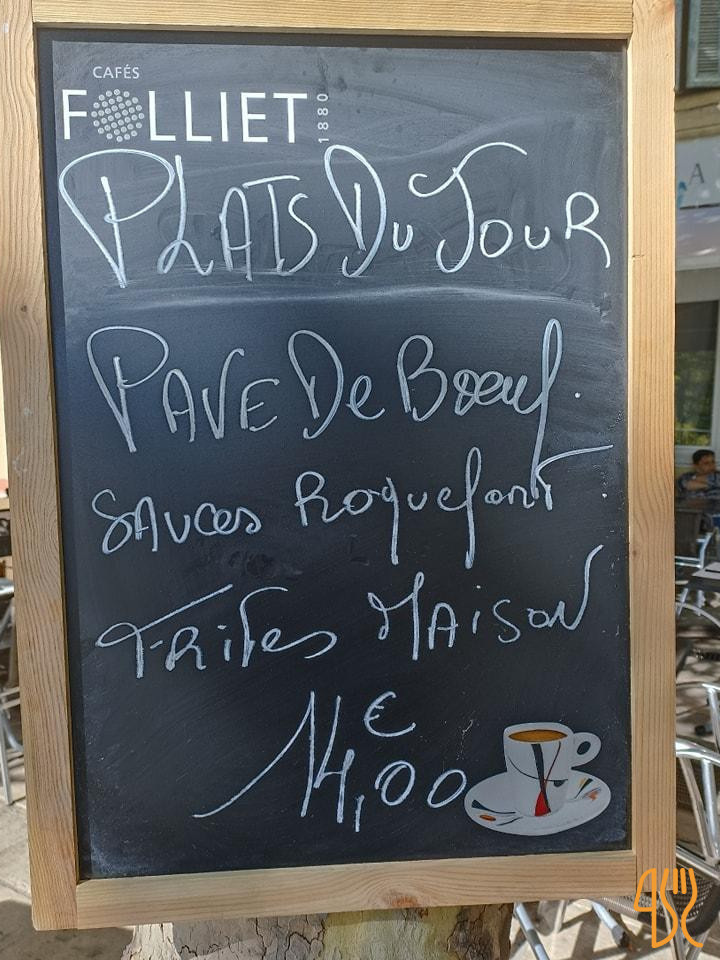 CAFÉS
FOLLIET 1880
PLATS DU JOUR
PAVE De Bœuf.
SAuces Roquefort.
FRITes MAiSON
14,00€